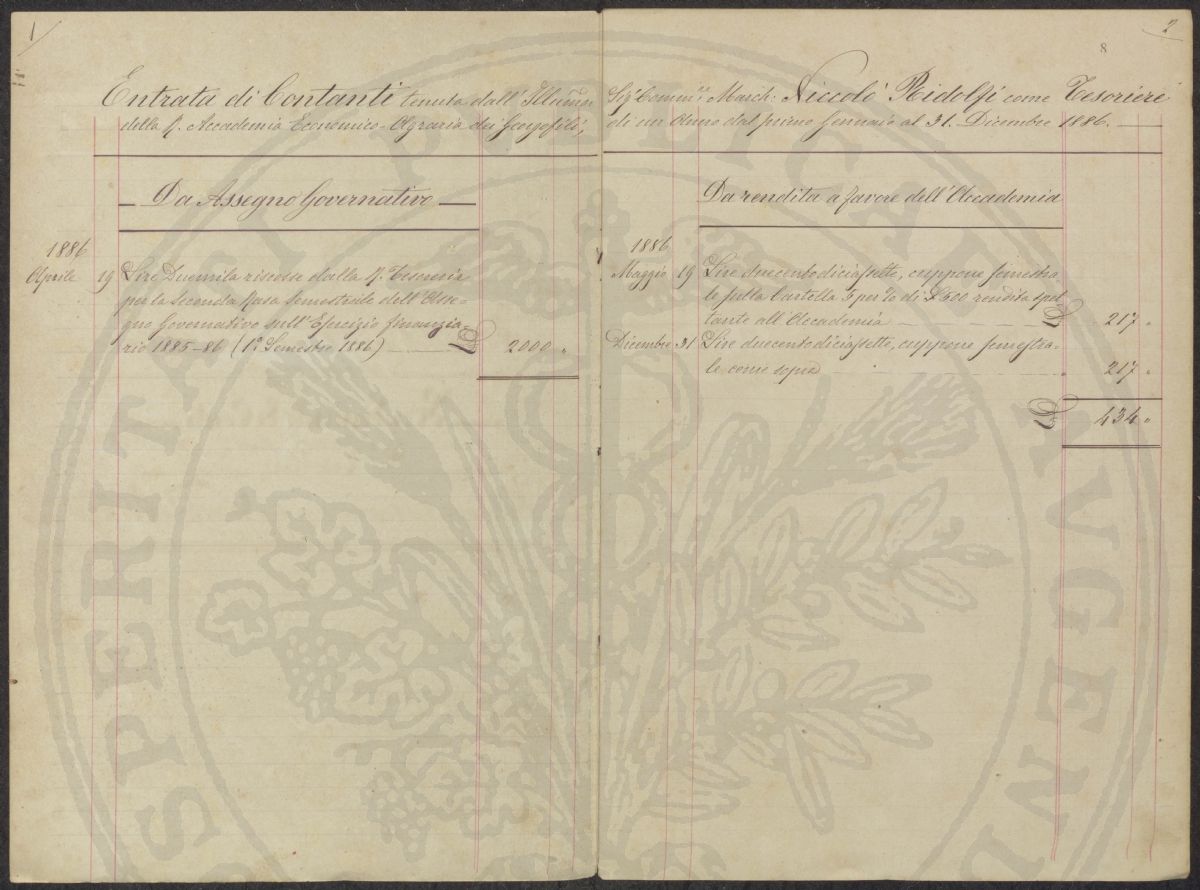 1
Entrata di Contanti tenuta dall' Illmo
della R. Accademia Economico-Agraria dei Georgofili,
Da Assegno Governativo
1886
Aprile 19 Lire Duemila riscosse dalla R.ª Tesoreria
per la Seconda Rata Semestrale dell'Asse=
gno Governativo sull'Esercizio finanzia=
rio 1885-86 (1.º Semestre 1886) £ 2000 "
2
8
Sig. Comm.re March: Niccolò Ridolfi come Tesoriere
di un Anno dal primo Gennaio al 31. Dicembre 1886.
Da rendita a favore dell'Accademia
1886
Maggio 19 Lire duecentodiciassette, cuppone semestra
le sulla Cartella 5 per % di £ 500 rendita spet
tante all'Accademia £ 217 "
Dicembre 31 Lire duecentodiciassette, cuppone semestra=
le come sopra " 217 "
£ 434 "
PERITATI PUBLICAE AUGEN